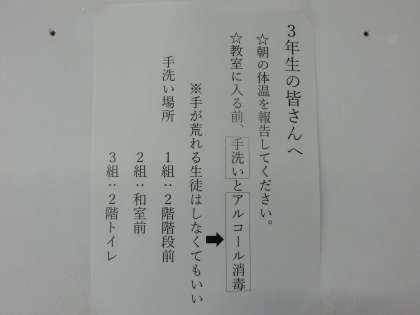 3年生の皆さんへ
☆朝の体温を報告してください。
☆教室に入る前、手洗いとアルコール消毒
※手が荒れる生徒はしなくてもいい
手洗い場所　1組：2階階段前
2組：和室前
3組：2階トイレ